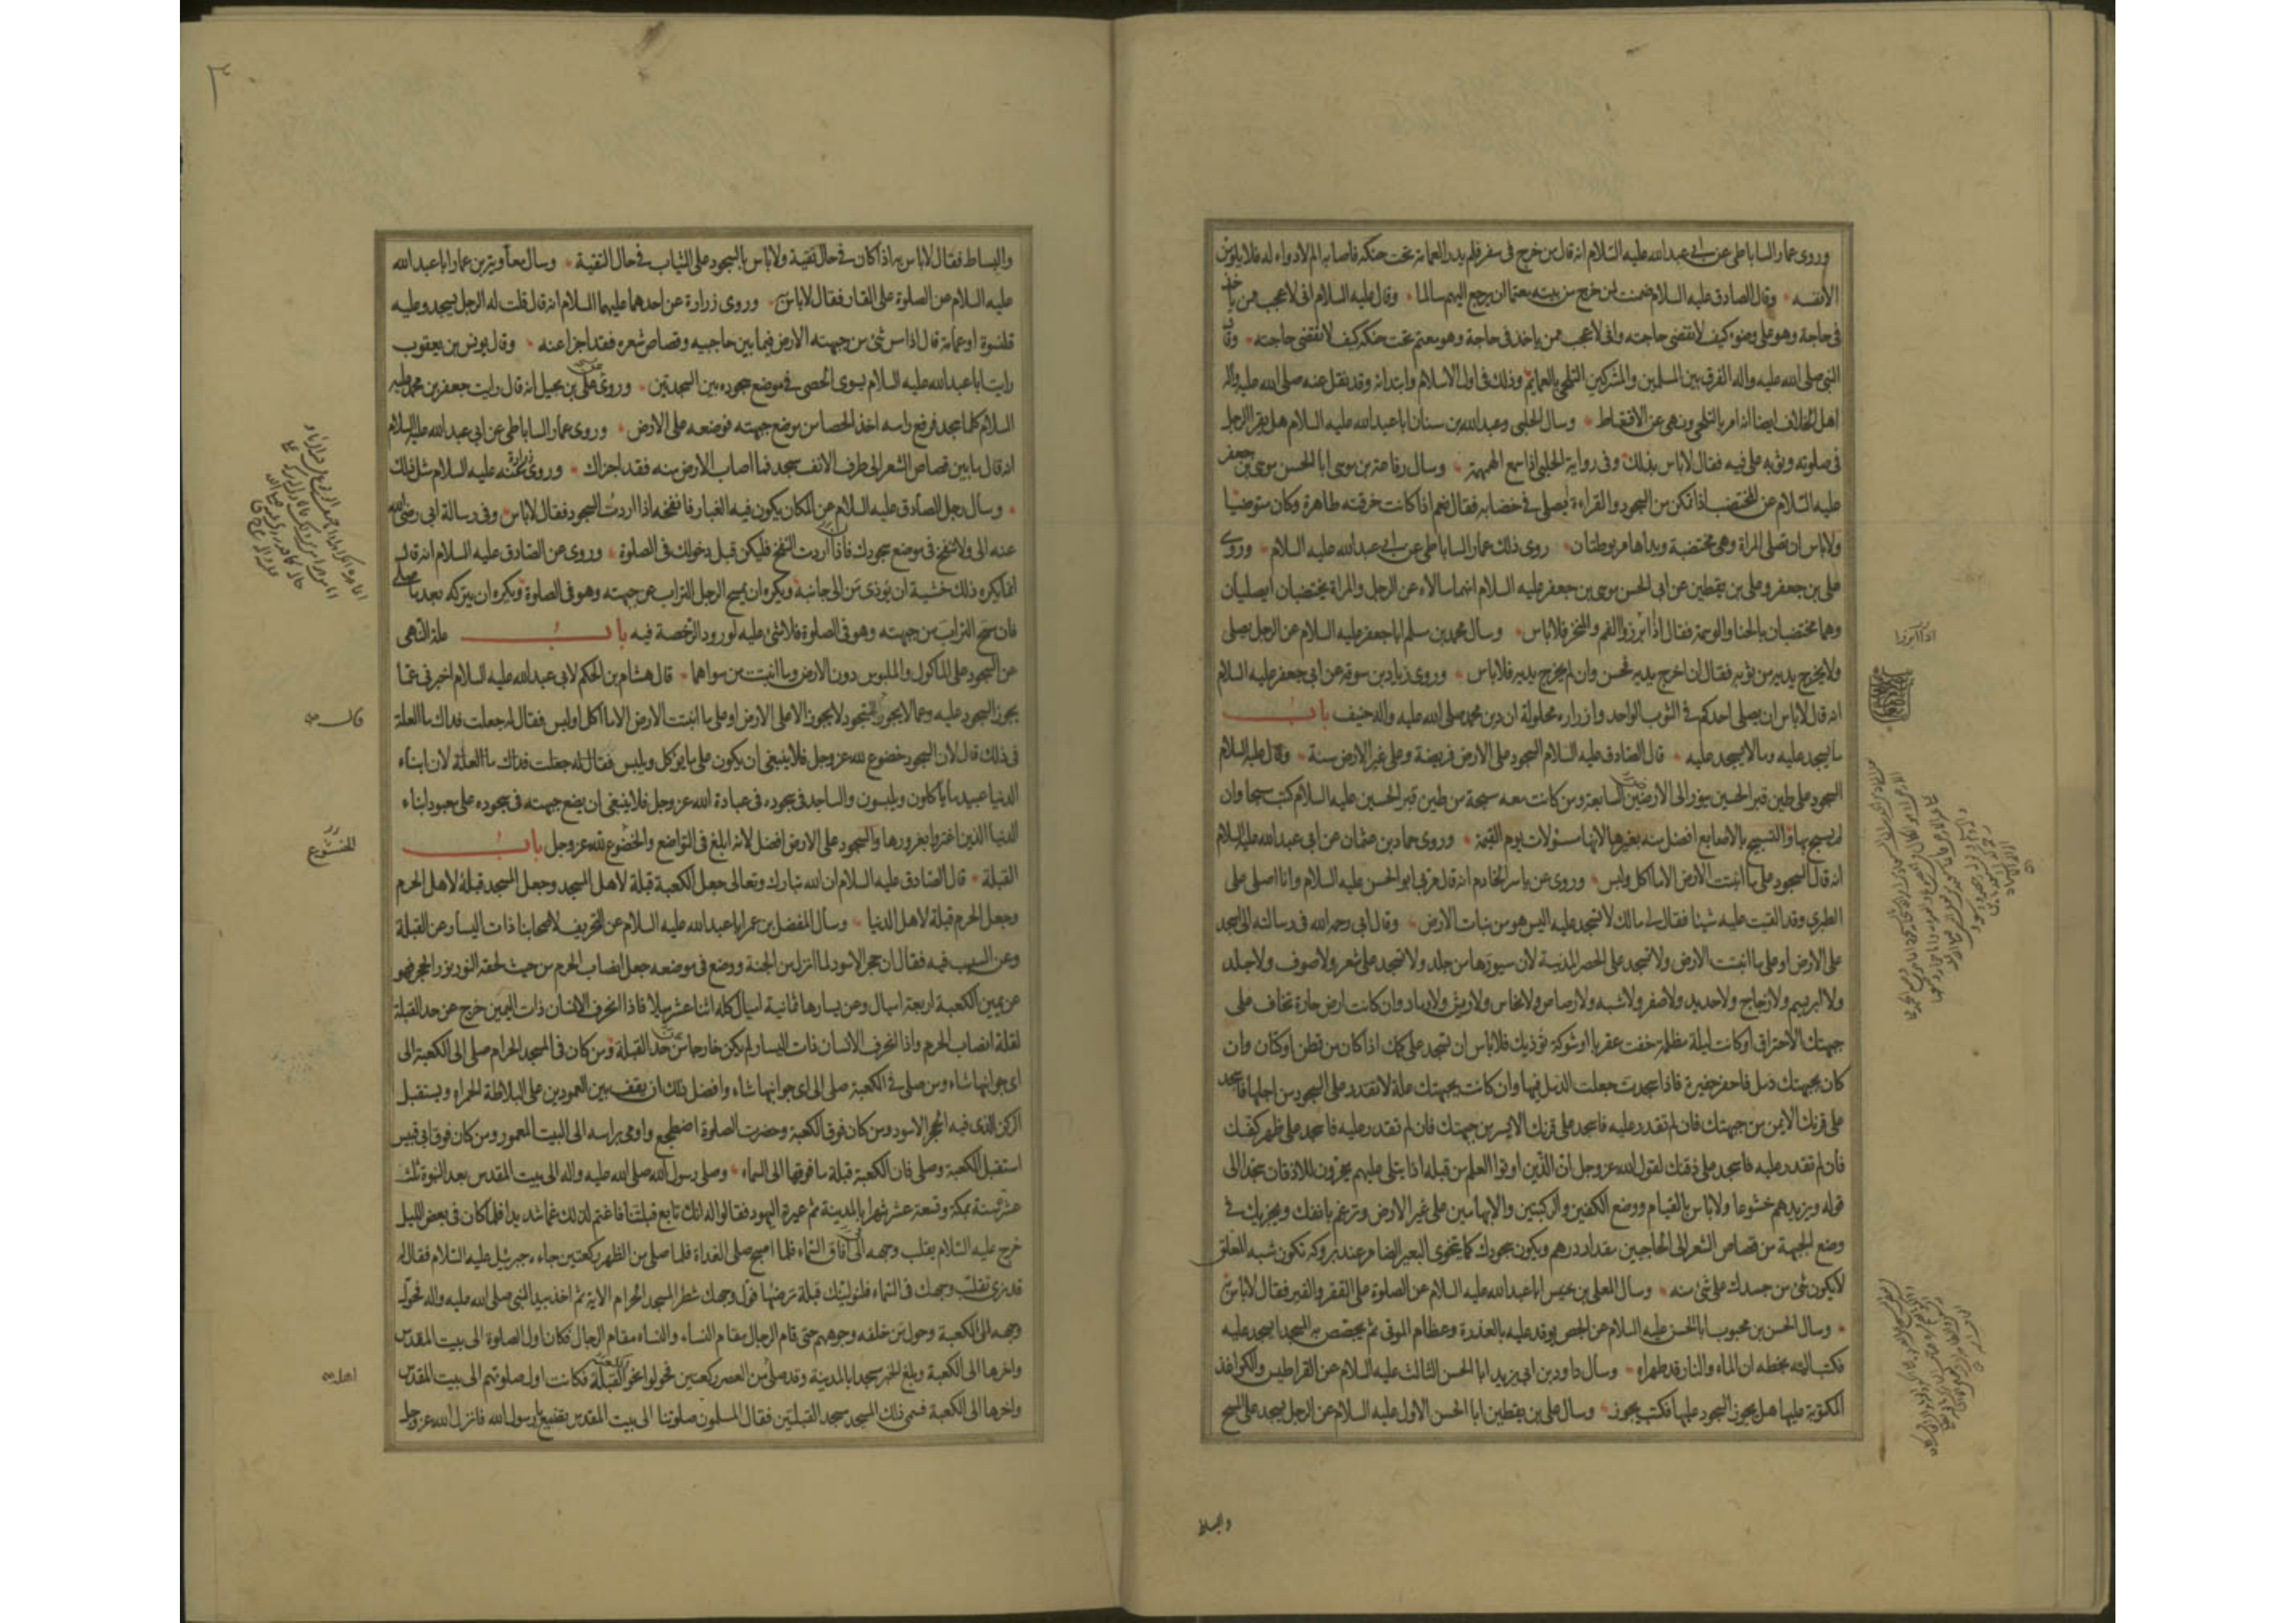 وروى عمار الساباطى عن ابى عبدالله عليه السلام انه قال من خرج فى سفر فلم يدر العمامة تحت حنكه فاصابه الم لا دواء له فلا يلومن
الا نفسه وقال الصادق عليه السلام ضمنت لمن خرج من بيته معتما ان يرجع اليهم سالما وقال عليه السلام انى لاعجب ممن ياخذ
فى حاجة وهو على وضوء كيف لا تقضى حاجته وانى لاعجب ممن ياخذ فى حاجة وهو معتم تحت حنكه كيف لا تقضى حاجته وقال
النبى صلى الله عليه واله الفرق بين المسلمين والمشركين التلحى بالعمايم وذلك فى اول الاسلام وابتدائه وقد نقل عنه صلى الله عليه واله
اهل الخلاف ايضا انه امر بالتلحى ونهى عن الاقتعاط وسال الحلبى وعبدالله بن سنان اباعبدالله عليه السلام هل يقرا الرجل
فى صلوته وثوبه على فيه فقال لاباس بذلك وفى رواية الحلبى اذا سمع الهمهمة وسال رفاعة بن موسى ابا الحسن موسى بن جعفر
عليه السلام عن المختضب اذا تمكن من السجود والقراءة ايصلى فى خضابه فقال نعم اذا كانت خرقته طاهرة وكان متوضيا
ولاباس ان تصلى المراة وهى مختضبة ويداها مربوطتان روى ذلك عمار الساباطى عن ابى عبدالله عليه السلام وروى
على بن جعفر وعلى بن يقطين عن ابى الحسن موسى بن جعفر عليه السلام انهما سالاه عن الرجل والمراة يختضبان ايصليان
وهما مختضبان بالحنا والوسمة فقال اذا ابرزوا الفم والمنخر فلاباس وسال محمد بن مسلم اباجعفر عليه السلام عن الرجل يصلى
ولا يخرج يديه من ثوبه فقال ان اخرج يديه فحسن وان لم يخرج يديه فلاباس وروى زياد بن سوقة عن ابى جعفر عليه السلام
انه قال لاباس ان يصلى احدكم فى الثوب الواحد وازراره محلولة ان دين محمد صلى الله عليه واله حنيف باب
ما يسجد عليه وما لا يسجد عليه قال الصادق عليه السلام السجود على الارض فريضة وعلى غير الارض سنة وقال عليه السلام
السجود على طين قبر الحسين ينور الى الارضين السابعة ومن كانت معه سبحة من طين قبر الحسين عليه السلام كتب مسبحا وان
لم يسبح بها والتسبيح بالاصابع افضل منه بغيرها لانها مسئولات يوم القيمة وروى حماد بن عثمان عن ابى عبدالله عليه السلام
انه قال السجود على ما انبتت الارض الا ما اكل ولبس وروى عن ياسر الخادم انه قال مر بى ابو الحسن عليه السلام وانا اصلى على
الطبرى وقد القيت عليه شيئا فقال لى مالك لا تسجد عليه اليس هو من نبات الارض وقال ابى رحمه الله فى رسالته الى اسجد
على الارض او على ما انبتت الارض ولا تسجد على الحصر المدنية لان سيورها من جلد ولا تسجد على شعر ولا صوف ولا جلد
ولا ابريسم ولا زجاج ولا حديد ولا صفر ولا شبه ولا رصاص ولا نحاس ولا ريش ولا رماد وان كانت ارض حارة تخاف على
جبهتك الاحتراق او كانت ليلة مظلمة خفت عقربا او شوكة تؤذيك فلاباس ان تسجد على كمك اذا كان من قطن او كتان وان
كان بجبهتك دمل فاحفر حفيرة فاذا سجدت جعلت الدمل فيها وان كانت بجبهتك علة لا تقدر على السجود من اجلها فاسجد
على قرنك الايمن من جبهتك فان لم تقدر عليه فاسجد على قرنك الايسر من جبهتك فان لم تقدر عليه فاسجد على ظهر كفك
فان لم تقدر عليه فاسجد على ذقنك لقول الله عز وجل ان الذين اوتوا العلم من قبله اذا يتلى عليهم يخرون للاذقان سجدا الى
قوله ويزيدهم خشوعا ولاباس بالقيام ووضع الكفين والركبتين والابهامين على غير الارض وترغم بانفك ويجزيك فى
وضع الجبهة من قصاص الشعر الى الحاجبين مقدار درهم ويكون سجودك كما يتخوى البعير الضامر عند بروكه تكون شبه المعلق
لا يكون شئ من جسدك على شئ منه وسال المعلى بن خنيس اباعبدالله عليه السلام عن الصلوة على القفر والقير فقال لاباس
وسال الحسن بن محبوب ابا الحسن عليه السلام عن الجص يوقد عليه بالعذرة وعظام الموتى ثم يجصص به المسجد ايسجد عليه
فكتب اليه بخطه ان الماء والنار قد طهراه وسال داود بن ابى يزيد ابا الحسن الثالث عليه السلام عن القراطيس والكواغذ
المكتوبة عليها هل يجوز السجود عليها فكتب يجوز وسال على بن يقطين ابا الحسن الاول عليه السلام عن الرجل يسجد على المسح
والبساط
والبساط فقال لاباس به اذا كان فى حال تقية ولاباس بالسجود على الثياب فى حال التقية وسال معاوية بن عمار اباعبدالله
عليه السلام عن الصلوة على القار فقال لاباس وروى زرارة عن احدهما عليهما السلام انه قال قلت له الرجل يسجد وعليه
قلنسوة او عمامة قال اذا مس شئ من جبهته الارض فيما بين حاجبيه وقصاص شعره فقد اجزا عنه وقال يونس بن يعقوب
رايت اباعبدالله عليه السلام يسوى الحصى فى موضع سجوده بين السجدتين وروى على بن بجيل انه قال رايت جعفر بن محمد عليه
السلام كلما سجد فرفع راسه اخذ الحصا من موضع جبهته فوضعه على الارض وروى عمار الساباطى عن ابى عبدالله عليه السلام
انه قال ما بين قصاص الشعر الى طرف الانف مسجد فما اصاب الارض منه فقد اجزاك وروى زرارة عنه عليه السلام مثل ذلك
وسال رجل الصادق عليه السلام عن المكان يكون فيه الغبار فانفخه اذا اردت السجود فقال لاباس وفى رسالة ابى رضى الله
عنه الى ولا تنفخ فى موضع سجودك فاذا اردت النفخ فليكن قبل دخولك فى الصلوة وروى عن الصادق عليه السلام انه قال
انما يكره ذلك خشية ان يؤذى من الى جانبه ويكره ان يمسح الرجل التراب عن جبهته وهو فى الصلوة ويكره ان يتركه بعد ما صلى
فان مسح التراب من جبهته وهو فى الصلوة فلا شئ عليه لورود الرخصة فيه باب علة النهى
عن السجود على الماكول والملبوس دون الارض وما انبتت من سواهما قال هشام بن الحكم لابى عبدالله عليه السلام اخبرنى عما
يجوز السجود عليه وعما لا يجوز السجود لا يجوز الا على الارض او على ما انبتت الارض الا ما اكل او لبس فقال له جعلت فداك ما العلة
قال
فى ذلك قال لان السجود خضوع لله عز وجل فلا ينبغى ان يكون على ما يؤكل ويلبس فقال له جعلت فداك ما العلة لان ابناء
الدنيا عبيد ما ياكلون ويلبسون والساجد فى سجوده فى عبادة الله عز وجل فلا ينبغى ان يضع جبهته فى سجوده على معبود ابناء
الدنيا الذين اغتروا بغرورها والسجود على الارض افضل لانه ابلغ فى التواضع والخضوع لله عز وجل باب
القبلة قال الصادق عليه السلام ان الله تبارك وتعالى جعل الكعبة قبلة لاهل المسجد وجعل المسجد قبلة لاهل الحرم
وجعل الحرم قبلة لاهل الدنيا وسال المفضل بن عمر اباعبدالله عليه السلام عن التحريف لاصحابنا ذات اليسار عن القبلة
وعن السبب فيه فقال ان حجر الاسود لما انزل من الجنة ووضع فى موضعه جعل انصاب الحرم من حيث لحقه النور نور الحجر فهو
عن يمين الكعبة اربعة اميال وعن يسارها ثمانية اميال كله اثنا عشر ميلا فاذا انحرف الانسان ذات اليمين خرج عن حد القبلة
لقلة انصاب الحرم واذا انحرف الانسان ذات اليسار لم يكن خارجا من حد القبلة ومن كان فى المسجد الحرام صلى الى الكعبة الى
اى جوانبها شاء ومن صلى فى الكعبة صلى الى اى جوانبها شاء وافضل ذلك ان يقف بين العمودين على البلاطة الحمراء ويستقبل
الركن الذى فيه الحجر الاسود ومن كان فوق الكعبة وحضرت الصلوة اضطجع واومى براسه الى البيت المعمور ومن كان فوق ابى قبيس
استقبل الكعبة وصلى فان الكعبة قبلة ما فوقها الى السماء وصلى رسول الله صلى الله عليه واله الى بيت المقدس بعد النبوة ثلث
عشرة سنة بمكة وتسعة عشر شهرا بالمدينة ثم عيرته اليهود فقالوا له انك تابع قبلتنا فاغتم لذلك غما شديدا فلما كان فى بعض الليل
خرج عليه السلام يقلب وجهه الى افاق السماء فلما اصبح صلى الغداة فلما صلى من الظهر ركعتين جاءه جبرئيل عليه السلام فقال له
قد نرى تقلب وجهك فى السماء فلنولينك قبلة ترضيها فول وجهك شطر المسجد الحرام الاية ثم اخذ بيد النبى صلى الله عليه واله فحول
وجهه الى الكعبة وحول من خلفه وجوههم حتى قام الرجال مقام النساء والنساء مقام الرجال فكان اول الصلوة الى بيت المقدس
واخرها الى الكعبة وبلغ الخبر مسجدا بالمدينة وقد صلى من العصر ركعتين فحولوا نحو القبلة فكانت اول صلوتهم الى بيت المقدس
واخرها الى الكعبة فسمى ذلك المسجد مسجد القبلتين فقال المسلمون صلوتنا الى بيت المقدس تضيع يا رسول الله فانزل الله عز وجل